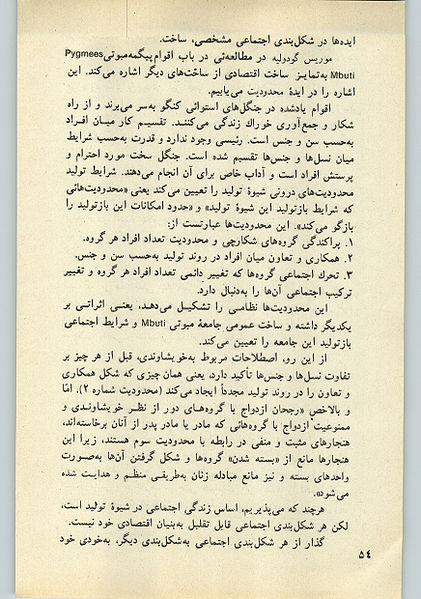 ایده‌ها در شکل‌بندی اجتماعی مشخصی، ساخت.
موریس گودولیه در مطالعه‌ئی در باب اقوام پیگمه‌مبوتی Pygmees
Mbuti به‌تمایز ساخت اقتصادی از ساخت‌های دیگر اشاره می‌کند. این
اشاره را در ایدهٔ محدودیت می‌یابیم.
اقوام یادشده در جنگل‌های استوائی کنگو به‌سر می‌برند و از راه
شکار و جمع‌آوری خوراك زندگی می‌کنند. تقسیم کار میان افراد
به‌حسب سن و جنس است. رئیسی وجود ندارد و قدرت به‌حسب شرایط
میان نسل‌ها و جنس‌ها تقسیم شده است. جنگل سخت مورد احترام و
پرستش افراد است و آداب خاص برای آن انجام می‌دهند. شرایط تولید
محدودیت‌های درونی شیوهٔ تولید را تعیین می‌کند یعنی «محدودیت‌هائی
که شرایط بازتولید این شیوهٔ تولید» و «حدود امکانات این بازتولید را
بازگو می‌کند». این محدودیت‌ها عبارتست از:
۱. پراکندگی گروه‌های شکارچی و محدودیت تعداد افراد هر گروه.
۲. همکاری و تعاون میان افراد در روند تولید به‌حسب سن و جنس.
۳. تحرك اجتماعی گروه‌ها که تغییر دائمی تعداد افراد هر گروه و تغییر
ترکیب اجتماعی آن‌ها را به‌دنبال دارد.
این محدودیت‌ها نظامی را تشکیل می‌دهد، یعنی اثراتی بر
یکدیگر داشته و ساخت عمومی جامعهٔ مبوتی Mbuti و شرایط اجتماعی
بازتولید این جامعه را تعیین می‌کند.
از این رو، اصطلاحات مربوط به‌خویشاوندی، قبل از هر چیز بر
تفاوت نسل‌ها و جنس‌ها تأکید دارد، یعنی همان چیزی که شکل همکاری
و تعاون را در روند تولید مجدداً ایجاد می‌کند (محدودیت شماره ۲). امّا
و بالاخص «رجحان ازدواج با گروه‌های دور از نظر خویشاوندی و
ممنوعیت ازدواج با گروه‌هائی که مادر یا مادر پدر از آنان برخاسته‌اند،
هنجارهای مثبت و منفی در رابطه با محدودیت سوم هستند، زیرا این
هنجارها مانع از «بسته شدن» گروه‌ها و شکل گرفتن آن‌ها به‌صورت
واحدهای بسته و نیز مانع مبادله زنان به‌طریقی منظم و هدایت شده
می‌شود».
هرچند که می‌پذیریم، اساس زندگی اجتماعی در شیوهٔ تولید است،
لکن هر شکل‌بندی اجتماعی قابل تقلیل به‌بنیان اقتصادی خود نیست.
گذار از هر شکل‌بندی اجتماعی به‌شکل‌بندی دیگر، به‌خودی خود
۵۴